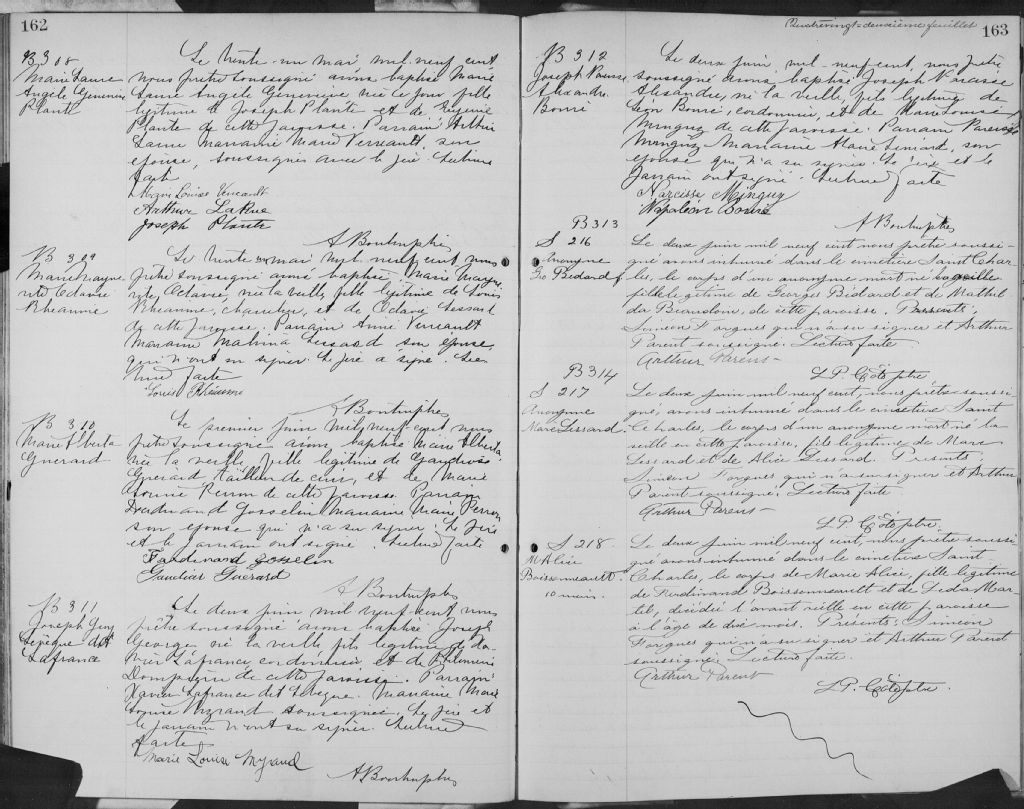 162
B 308
Marie Laure
Angèle Genevieve
Plante
Le trente-un mai mil neuf cent
nous prêtre soussigné avons baptisé Marie
Laure Angèle Genevieve née ce jour fille
légitime de Joseph Plante et de
Plante de cette paroisse. Parrain Arthur
Larue Marraine Marie Verreault, son
epouse, soussignés avec le père. Lecture
faite
Marie Louise Verreault
Arthur LaRue
Joseph Plante
A Bontruphes
B 309
Marie Margue
rite Octavie
Rheaume
Le trente un mai mil neuf cent nous
prêtre soussigné avons baptisé Marie Margue
rite, Octavie, née la veille, fille légitime de Louis
Rheaume, charretier, et de Octavie Lessard
de cette paroisse. Parrain Verreault
Marraine Malvina Lessard son epouse,
qui n'ont su signer. Le père a signé. Lec
ture faite
Louis Rhéaume
A Bontruphes
B 310
Marie Alberta
Guerard
Le premier juin mil neuf cent nous
prêtre soussigné avons baptisé Marie Alberta
née la veille, fille légitime de Gaudiose
Guerard tailleur de cuir, et de Marie
Perron de cette paroisse. Parrain
Ferdinand Gosselin Marraine Marie Perron
son, epouse qui n'a su signer. Le père
et le parrain ont signé. Lecture faite
Ferdinard Gosselin
Guérard
A Bontruphes
B 311
Joseph Geor
Lévèque dit
Lafrance
Le deux juin mil neuf cent nous
prêtre soussigné avons baptisé Joseph
Georges né la veille fils légitime de Xa-
vier Lafrance, cordonnier et de Philomène
Dompierre de cette paroisse. Parrain
Xavier Lafrance dit Levèque. Marraine Marie
Louise Myrand soussignée. Le père et
le parrain n'ont su signer. Lecture
faite
Marie Louise Myrand
A Bontruphes
Quatrevingt-deuxième feuillet
163
B 312
Joseph Narcisse
Alexandre
Borné
Le deux juin mil neuf cent, nous prêtre
soussigné avons baptisé Joseph Narcisse
Alexandre, né la veille, fils légitime de
Léon Borné, cordonnier, et de Marie Louise
Minguy de cette paroisse. Parrain Narcisse
Minguy Marraine Marie Simard, son
epouse qui n'a su signer. Le père et le
parrain ont signé. Lecture faite
Narcisse Minguy
Napoléon Borné
A Bontruphes
B 313
S 216
Anonyme
Geo Bédard
Le deux juin mil neuf cent, nous prêtre soussi-
gné avons inhumé dans le cimetière Saint Char
les, le corps d'un anonyme mort né la veille
fils légitime de Georges Bédard et de Mathil
da Beaudoin, de cette paroisse. Présents:
Siméon Forgues qui n'a su signer et Arthur
Parent soussigné. Lecture faite
Arthur Parent
L.P. Côté ptre
B 314
S 217
Anonyme
Marc Lessard
Le deux juin mil neuf cent, nous prêtre soussi-
gné, avons inhumé dans le cimetière Saint
Charles, le corps d'un anonyme mort né la
veille en cette paroisse, fils légitime de Marc
Lessard et de Alice Lessard. Présents:
Siméon Forgues qui n'a su signer et Arthur
Parent soussigné. Lecture faite
Arthur Parent
L.P. Côté ptre.
S 218.
M. Alice
Boissonneault
10 mois.
Le deux juin mil neuf cent, nous prêtre soussi
gné avons inhumé dans le cimetière Saint
Charles, le corps de Marie Alice, fille légitime
de Ferdinand Boissonneault et de Léda Mar
tel, décédée l'avant veille en cette paroisse
à l'âge de dix mois. Présents: Siméon
Forgues qui n'a su signer et Arthur Parent
soussigné. Lecture faite.
Arthur Parent
L.P. Côté ptre.